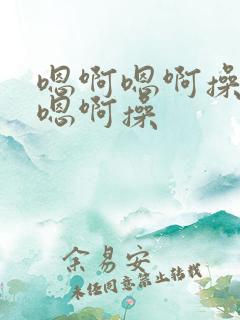 嗯啊嗯啊操
嗯啊操
余易安
未经同意禁止转载